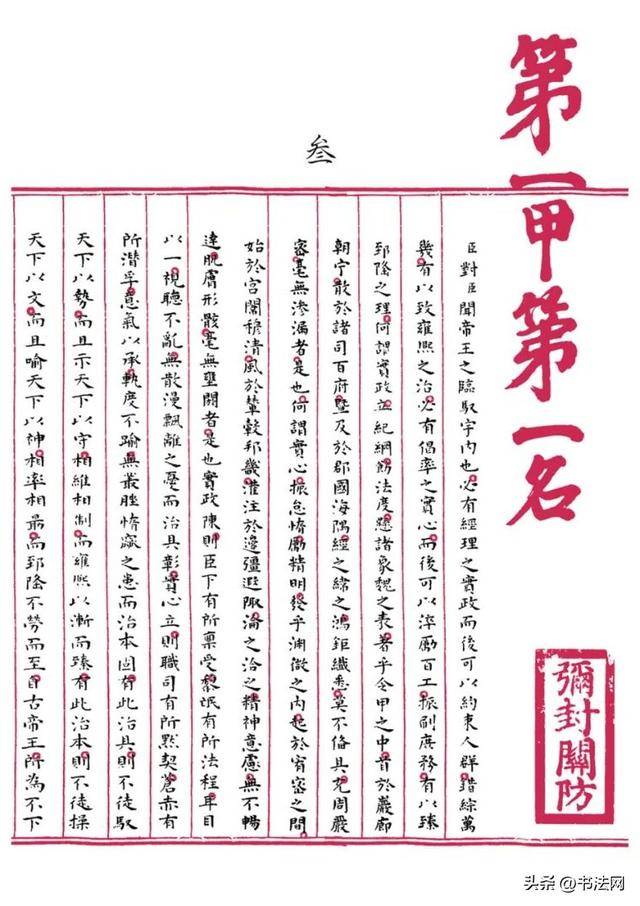 第一甲第一名
彌封關防
叁
臣對臣聞帝王之臨馭宇內也必有經理之實政而後可以約束人群錯綜萬
幾有以致雍熙之治必有倡率之實心而後可以淬勵百工振刷庶務有以臻
郅隆之理何謂實政立紀綱飭法度懸諸象魏之表著乎令甲之中首於巖廊
朝宁散於諸司百府暨及於郡國海隅經之緯之鴻鉅纖悉莫不備具充周嚴
密毫無滲漏者是也何謂實心振怠惰勵精明發乎淵微之內起於宥密之間
始於宮闈穆清風於輦轂邦畿灌注於邊疆遐陬淪之洽之精神意慮無不暢
達肌膚形骸毫無壅閼者是也實政陳則臣下有所稟受黎氓有所法程耳目
以一視聽不亂無散漫飄離之憂而治具彰實心立則職司有所默契蒼赤有
所潛孚意氣以承軌度不踰無叢脞惰窳之患而治本固有此治具則不徒馭
天下以勢而且示天下以守相維相制而雍熙以漸而臻有此治本則不徒操
天下以文而且喻天下以神相率相勗而郅隆不勞而至自古帝王所為不下
头条 @书法网